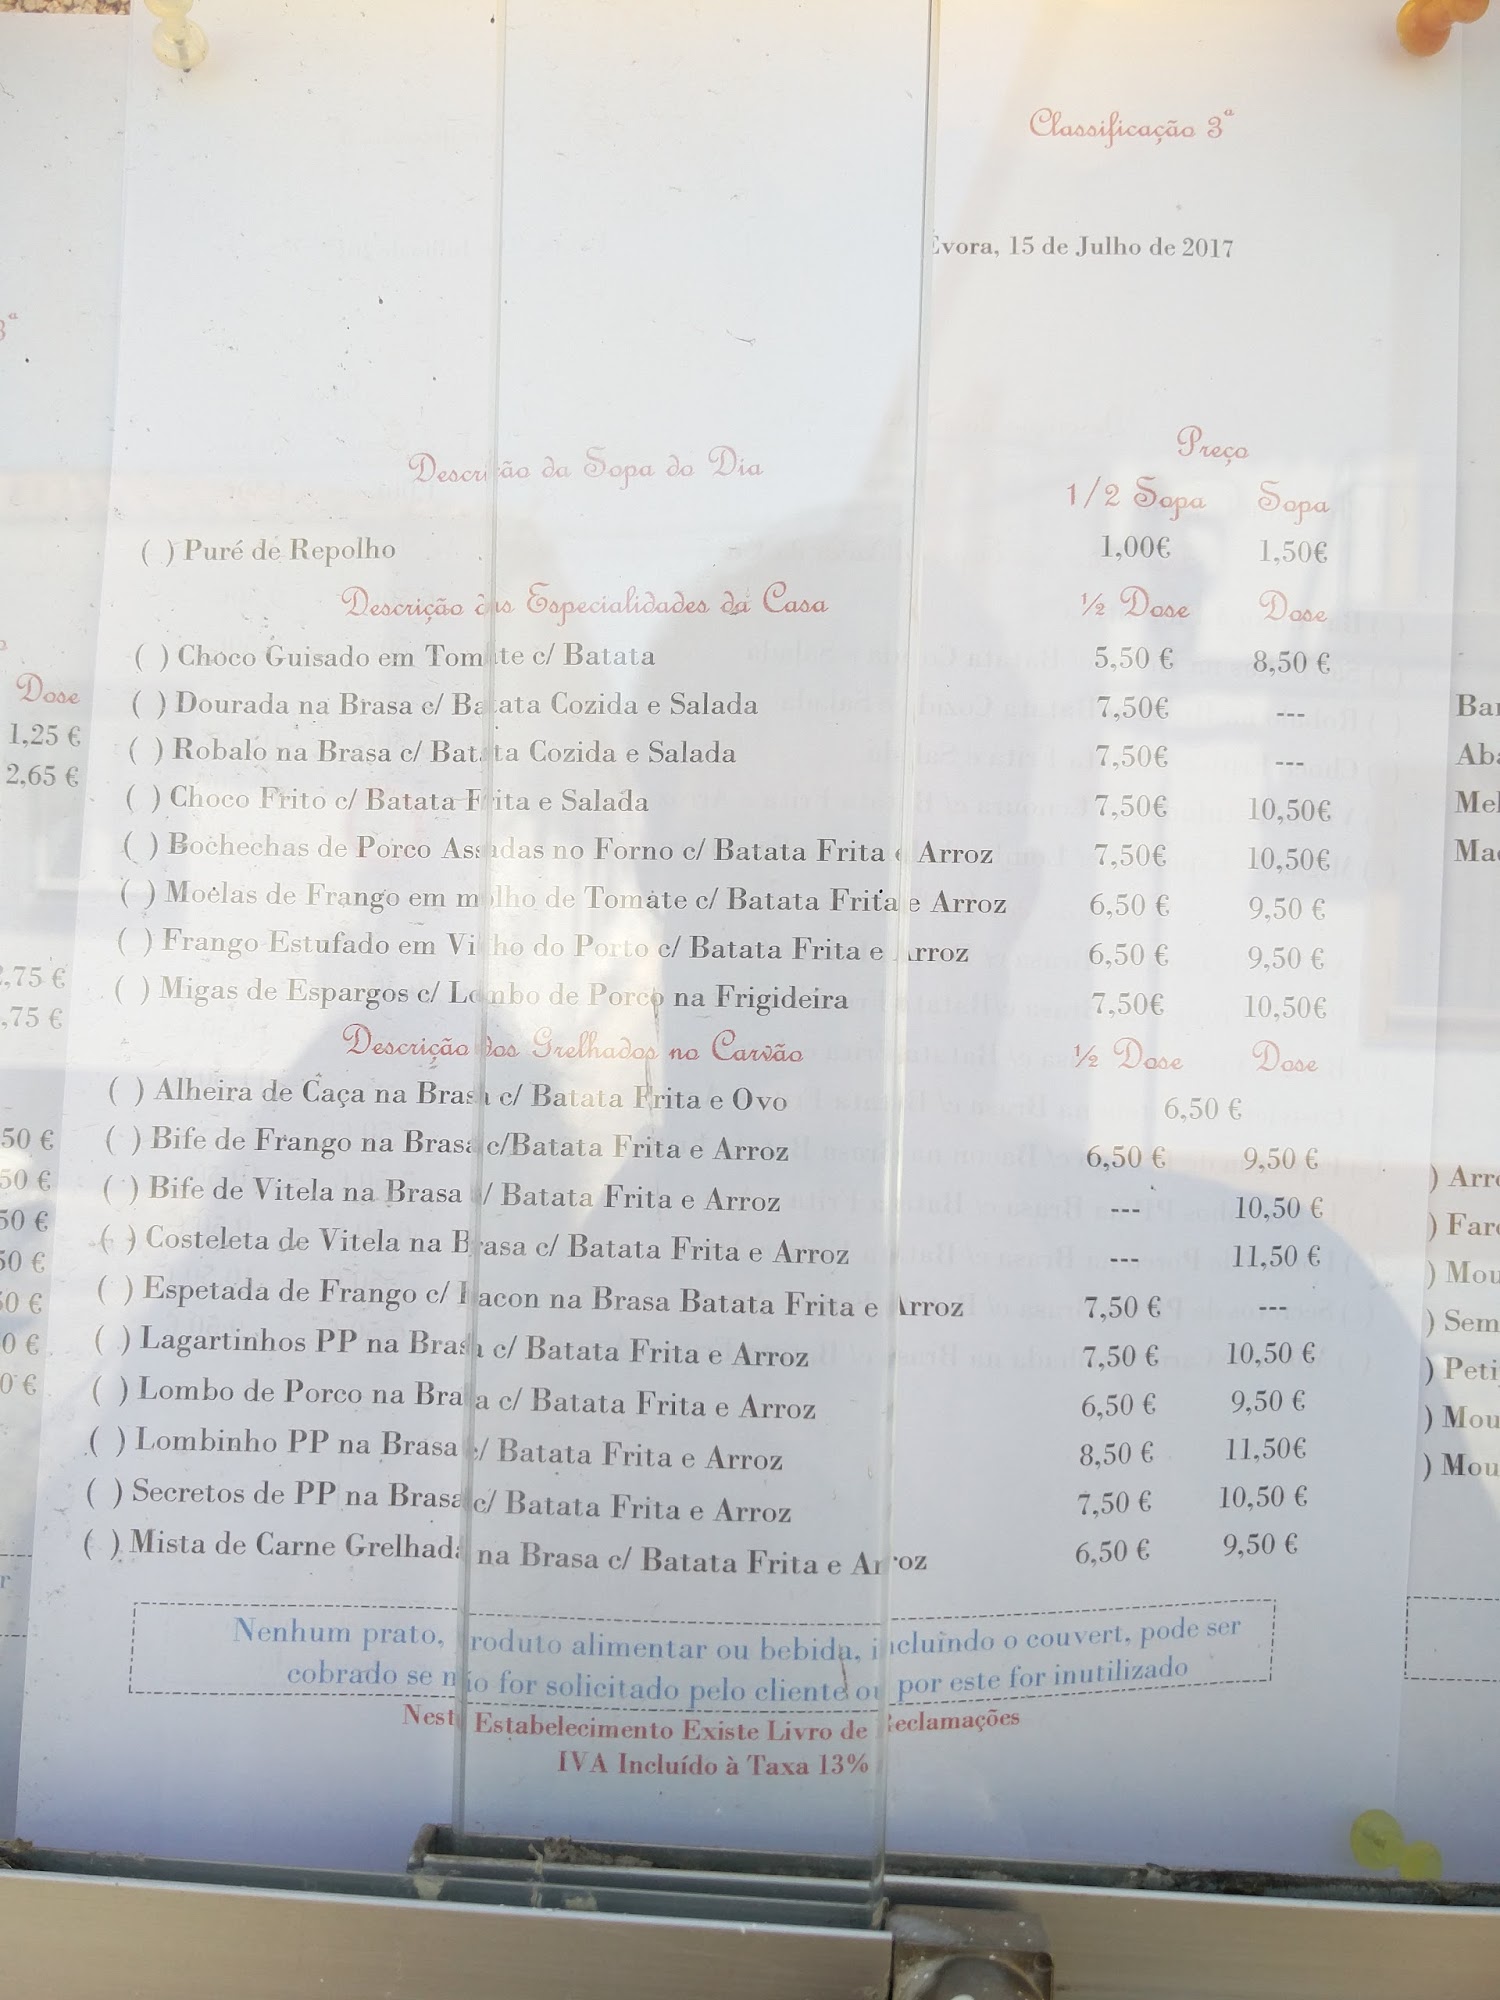 Classificação 3ª
Évora, 15 de Julho de 2017
Preço
Descrição da Sopa do Dia 1/2 Sopa Sopa
( ) Puré de Repolho 1,00€ 1,50€
Descrição das Especialidades da Casa ½ Dose Dose
( ) Choco Guisado em Tomate c/ Batata 5,50 € 8,50 €
( ) Dourada na Brasa c/ Batata Cozida e Salada 7,50€ ---
( ) Robalo na Brasa c/ Batata Cozida e Salada 7,50€ ---
( ) Choco Frito c/ Batata Frita e Salada 7,50€ 10,50€
( ) Bochechas de Porco Assadas no Forno c/ Batata Frita e Arroz 7,50€ 10,50€
( ) Moelas de Frango em molho de Tomate c/ Batata Frita e Arroz 6,50 € 9,50 €
( ) Frango Estufado em Vinho do Porto c/ Batata Frita e Arroz 6,50 € 9,50 €
( ) Migas de Espargos c/ Lombo de Porco na Frigideira 7,50€ 10,50€
Descrição dos Grelhados no Carvão ½ Dose Dose
( ) Alheira de Caça na Brasa c/ Batata Frita e Ovo 6,50 €
( ) Bife de Frango na Brasa c/Batata Frita e Arroz 6,50 € 9,50 €
( ) Bife de Vitela na Brasa c/ Batata Frita e Arroz --- 10,50 €
( ) Costeleta de Vitela na Brasa c/ Batata Frita e Arroz --- 11,50 €
( ) Espetada de Frango c/ Bacon na Brasa Batata Frita e Arroz 7,50 € ---
( ) Lagartinhos PP na Brasa c/ Batata Frita e Arroz 7,50 € 10,50 €
( ) Lombo de Porco na Brasa c/ Batata Frita e Arroz 6,50 € 9,50 €
( ) Lombinho PP na Brasa c/ Batata Frita e Arroz 8,50 € 11,50€
( ) Secretos de PP na Brasa c/ Batata Frita e Arroz 7,50 € 10,50 €
( ) Mista de Carne Grelhada na Brasa c/ Batata Frita e Arroz 6,50 € 9,50 €
Nenhum prato, produto alimentar ou bebida, incluindo o couvert, pode ser
cobrado se não for solicitado pelo cliente ou por este for inutilizado
Neste Estabelecimento Existe Livro de Reclamações
IVA Incluído à Taxa 13%
3ª
Dose
1,25 €
2,65 €